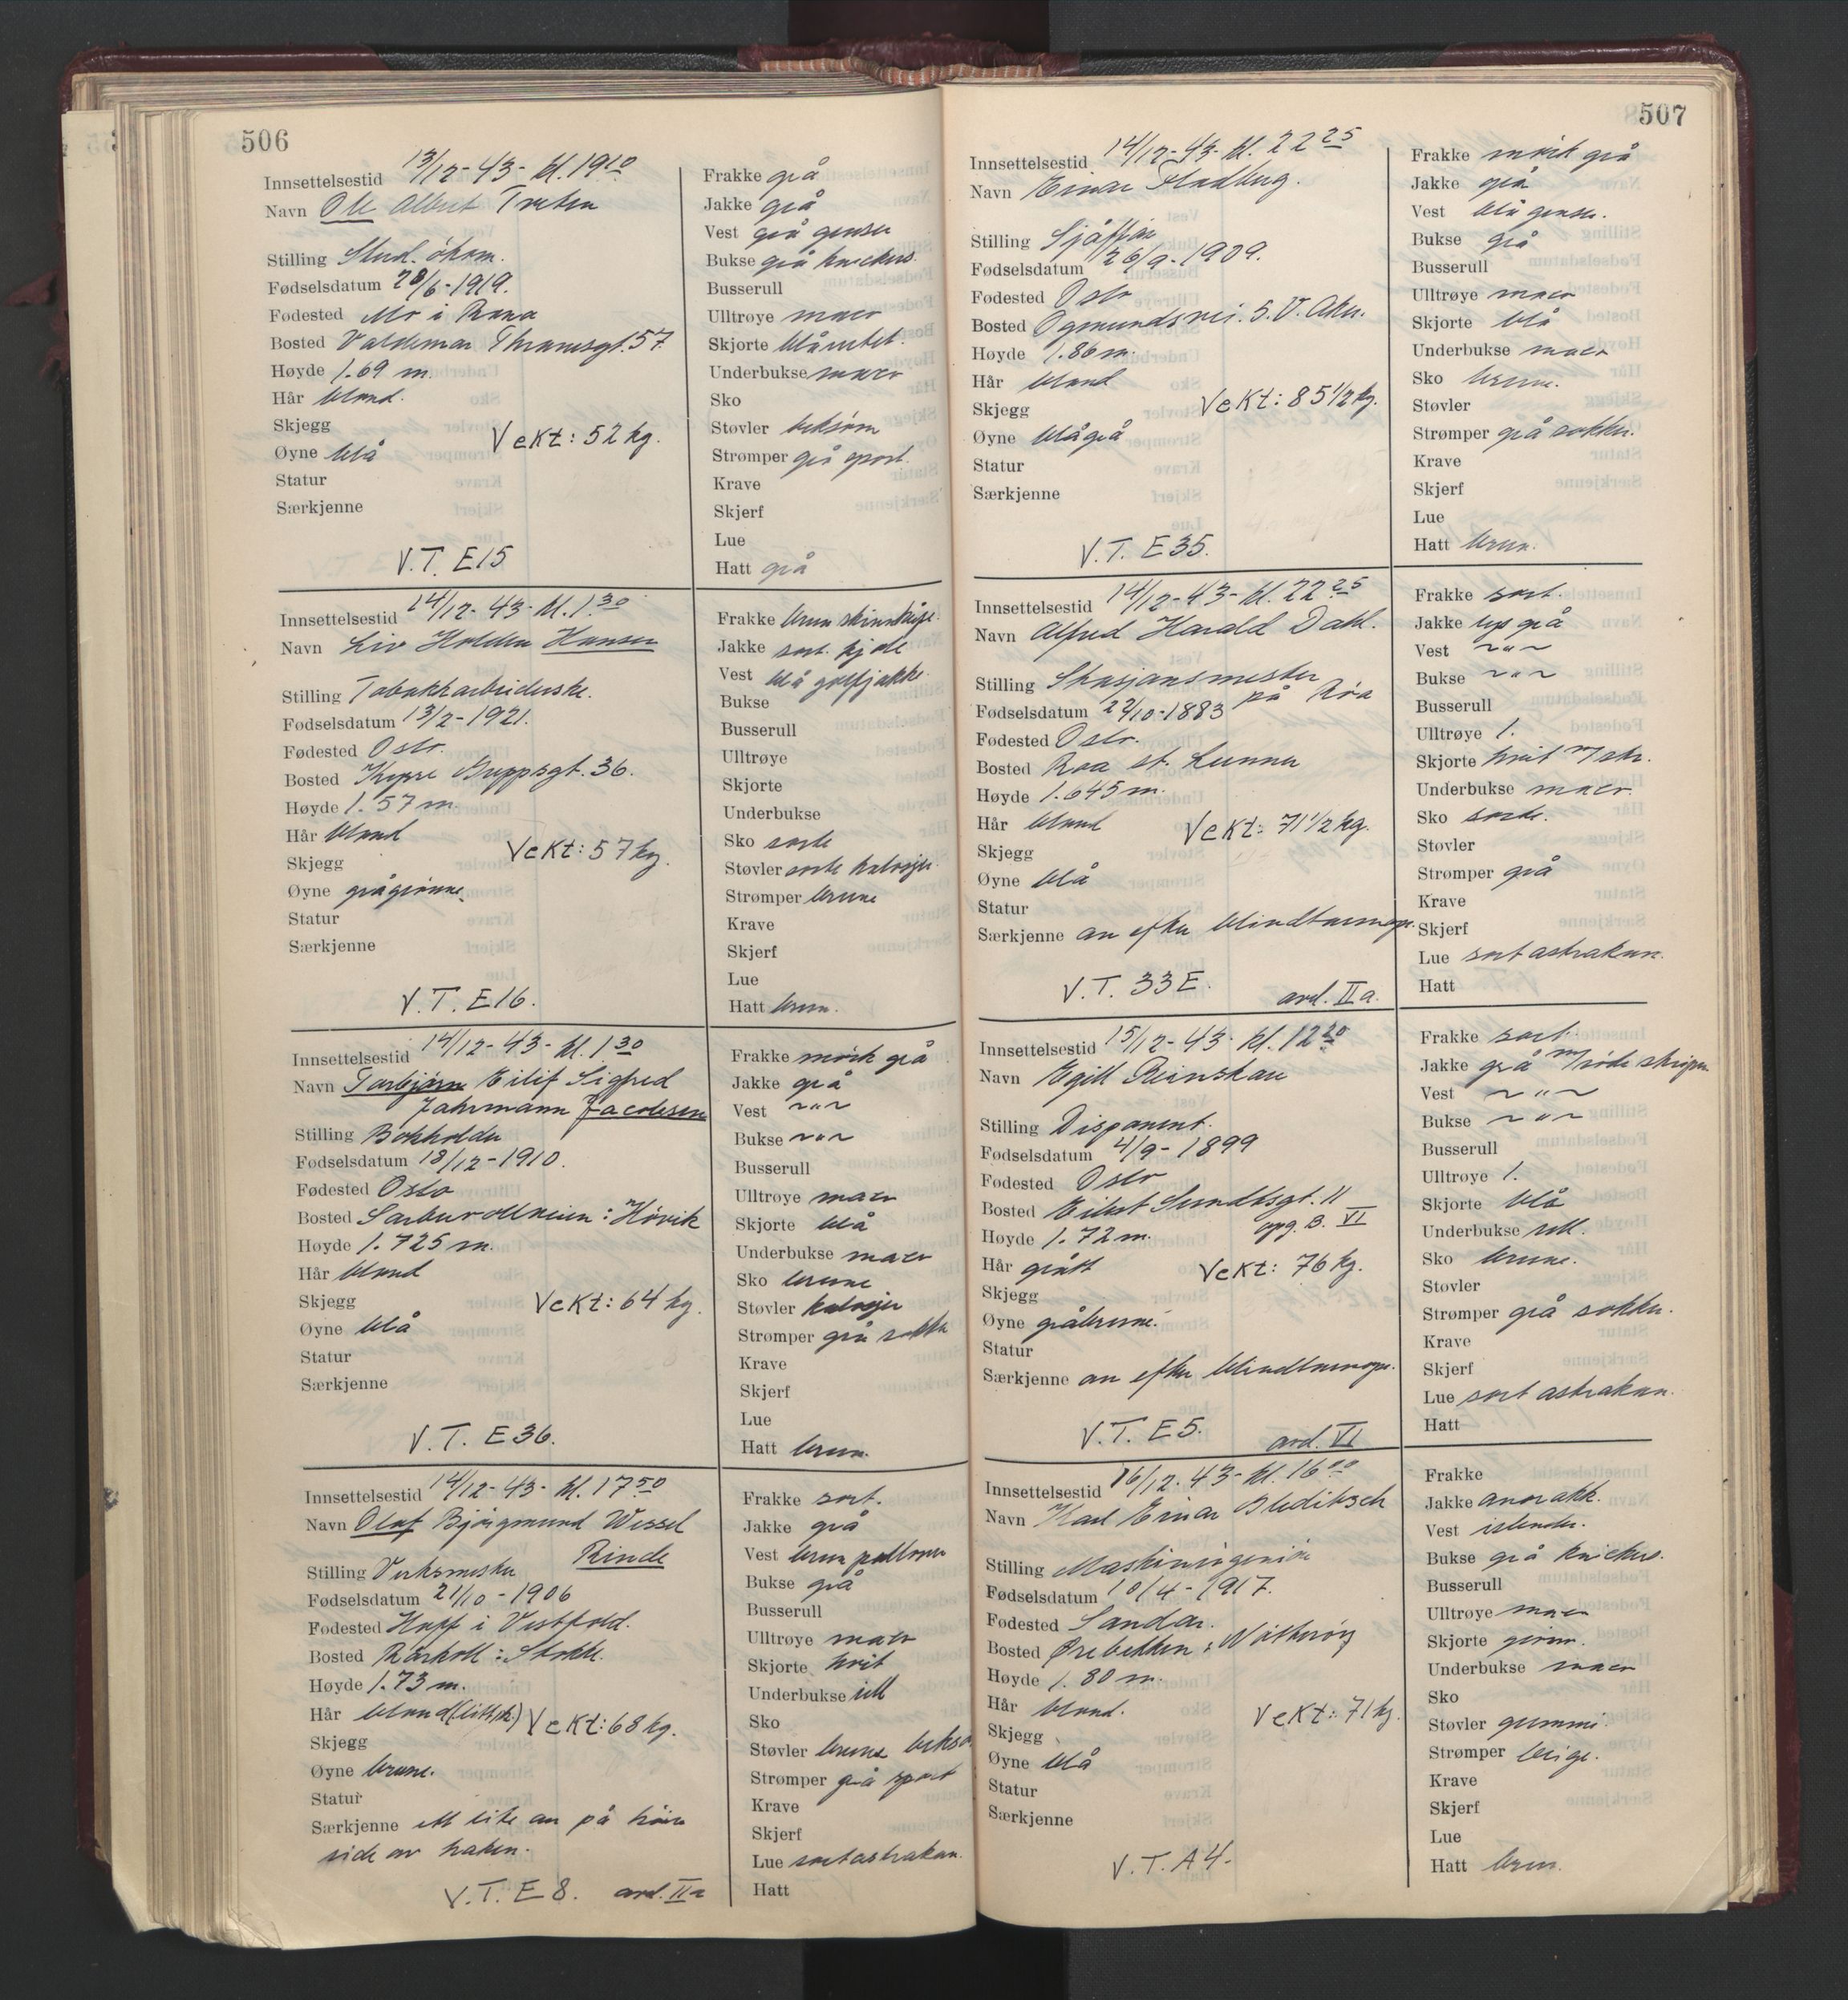 506
Innsettelsestid 13/12-43- kl. 19 10
Navn Ole Albert Treten
Stilling Stud. økom.
Fødselsdatum 28/6-1919.
Fødested Mo i Rana
Bosted Valdemar Thranesgt. 57
Høyde 1.69 m.
Hår blond.
Skjegg
Vekt: 52 kg.
Øyne blå
Statur
Særkjenne
V.T. E15
Frakke grå
Jakke grå
Vest grå genser
Bukse grå knickers.
Busserull
Ulltrøye maco
Skjorte blårutet.
Underbukse maco
Sko
Støvler beksøm
Strømper grå sport.
Krave
Skjerf
Lue
Hatt grå
Innsettelsestid 14/12-43- kl. 1 30
Navn Liv Holden Hansen
Stilling Tobakkarbeiderske.
Fødselsdatum 13/2-1921.
Fødested Oslo.
Bosted Jeppes gt. 36.
Høyde 1.57 m.
Hår blond
Skjegg
Vekt: 57 kg.
Øyne grågrønne.
Statur
Særkjenne
V.T. E16.
Frakke brun skinnkåpe.
Jakke sort kjole
Vest blå golfjakke.
Bukse
Busserull
Ulltrøye
Skjorte
Underbukse
Sko sorte
Støvler sorte kalosjer
Strømper brune
Krave
Skjerf
Lue
Hatt brun.
Innsettelsestid 14/12-43- kl. 1 30
Navn Torbjørn Eilif Sigfred
Fahrmann Jacobsen
Stilling Bokholder
Fødselsdatum 18/12-1910.
Fødested Oslo
Bosted : Høvik
Høyde 1.725 m.
Hår blond
Skjegg
Vekt: 64 kg.
Øyne blå
Statur
Særkjenne
V.T. E36.
Frakke mørk grå
Jakke grå
Vest ~"~
Bukse ~"~
Busserull
Ulltrøye maco
Skjorte blå
Underbukse maco
Sko brune
Støvler kalosjer
Strømper grå sokker
Krave
Skjerf
Lue
Hatt brun.
Innsettelsestid 14/12-43- kl. 17 50
Navn Olaf Bjørgmund Wessel
Rinde
Stilling Verksmester
Fødselsdatum 21/10-1906
Fødested Hoff i Vestfold.
Bosted Råstoll : Stokke.
Høyde 1.73 m.
Hår blond (litt)
Vekt: 68 kg.
Skjegg
Øyne brune.
Statur
Særkjenne ett lite arr på høire
side av haken.
V.T. E8. avd. IIa
Frakke sort.
Jakke grå
Vest brun pullover
Bukse grå
Busserull
Ulltrøye maco
Skjorte hvit
Underbukse ull
Sko
Støvler brune beksøm
Strømper grå sport
Krave
Skjerf
Lue sort astrakan.
Hatt
507
Innsettelsestid 14/12-43- kl. 22 25
Navn Einar Fladberg.
Stilling Sjåffør
Fødselsdatum 26/9-1909.
Fødested Oslo
Bosted Ogmundsvei. 5. V. Aker.
Høyde 1.86 m.
Hår blond
Skjegg
Vekt: 85 1/2 kg.
Øyne blågrå
Statur
Særkjenne
V.T. E35.
Frakke mørk grå
Jakke grå
Vest blå genser.
Bukse grå
Busserull
Ulltrøye maco
Skjorte blå
Underbukse maco
Sko brune.
Støvler
Strømper grå sokker.
Krave
Skjerf
Lue
Hatt brun.
Innsettelsestid 14/12-43- kl. 22 25
Navn Alfred Harald Dahl.
Stilling Stasjonsmester
på Roa
Fødselsdatum 22/10-1883
Fødested Oslo.
Bosted Roa st. Lunner
Høyde 1.645 m.
Hår blond
Vekt: 71 1/2 kg.
Skjegg
Øyne blå
Statur
Særkjenne arr efter blindtarmop.
V.T. 33E. avd. IIa.
Frakke sort.
Jakke lys grå
Vest ~"~
Bukse ~"~
Busserull
Ulltrøye 1.
Skjorte hvit m/str.
Underbukse maco.
Sko sorte.
Støvler
Strømper grå
Krave
Skjerf
Lue sort astrakan.
Hatt
Innsettelsestid 15/12-43- kl. 12 20
Navn Egill Reinskau
Stilling Disponent.
Fødselsdatum 4/9-1899
Fødested Oslo
Bosted Eilert Sundtsgt. 11
opg. B. VI
Høyde 1.72 m.
Hår grått
Vekt: 76 kg.
Skjegg
Øyne gråbrune.
Statur
Særkjenne arr efter blindtarmop.
V.T. E5. avd. VI
Frakke sort.
Jakke grå m/røde striper
Vest ~"~
Bukse ~"~
Busserull
Ulltrøye 1.
Skjorte blå
Underbukse ull.
Sko brune.
Støvler
Strømper grå sokker.
Krave
Skjerf
Lue sort astrakan.
Hatt
Innsettelsestid 16/12.43- kl. 16 00
Navn Karl Einar Gleditsch
Stilling Maskiningeniør
Fødselsdatum 10/4-1917.
Fødested Sandar.
Bosted Ørebekken : Nøtterøy
Høyde 1.80 m.
Hår blond.
Vekt: 71 kg.
Skjegg
Øyne blå
Statur
Særkjenne
V.T. A4.
Frakke
Jakke anorakk.
Vest islender.
Bukse grå knickers.
Busserull
Ulltrøye maco
Skjorte grønn.
Underbukse maco
Sko
Støvler gummi.
Strømper beige.
Krave
Skjerf
Lue
Hatt brun.